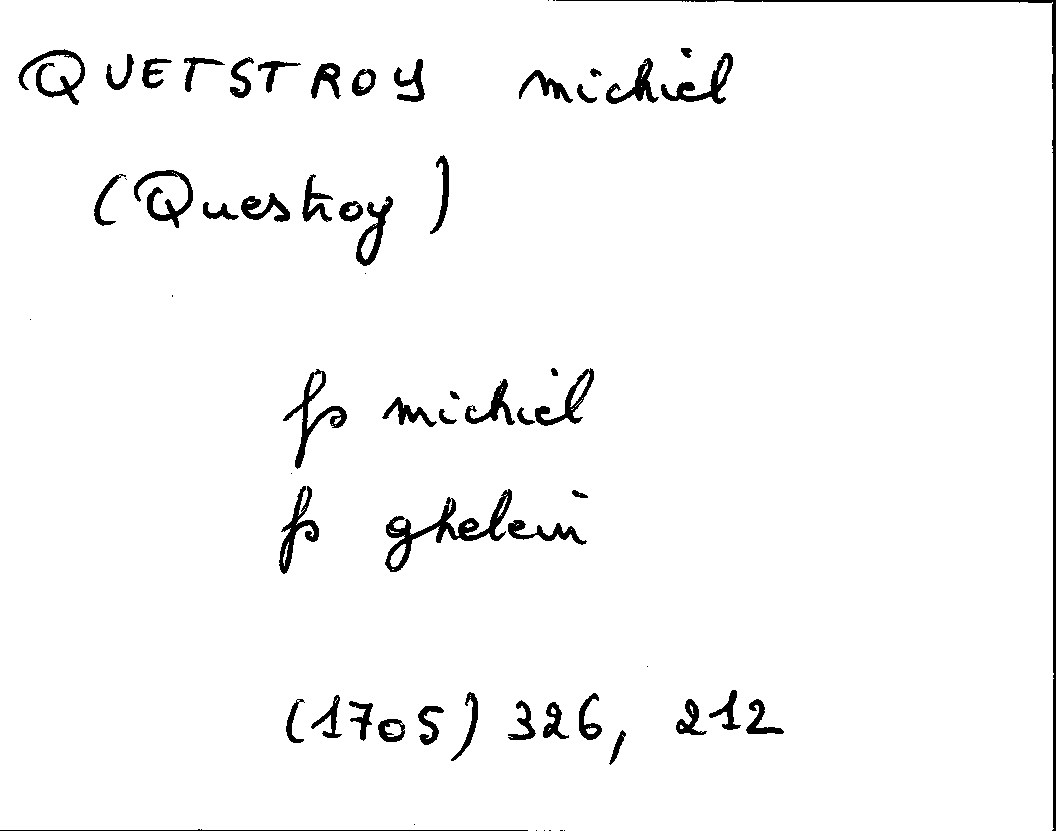 QUETSTROY michiel
(Questroy)
fs michiel
fs ghelein
(1705) 326, 212